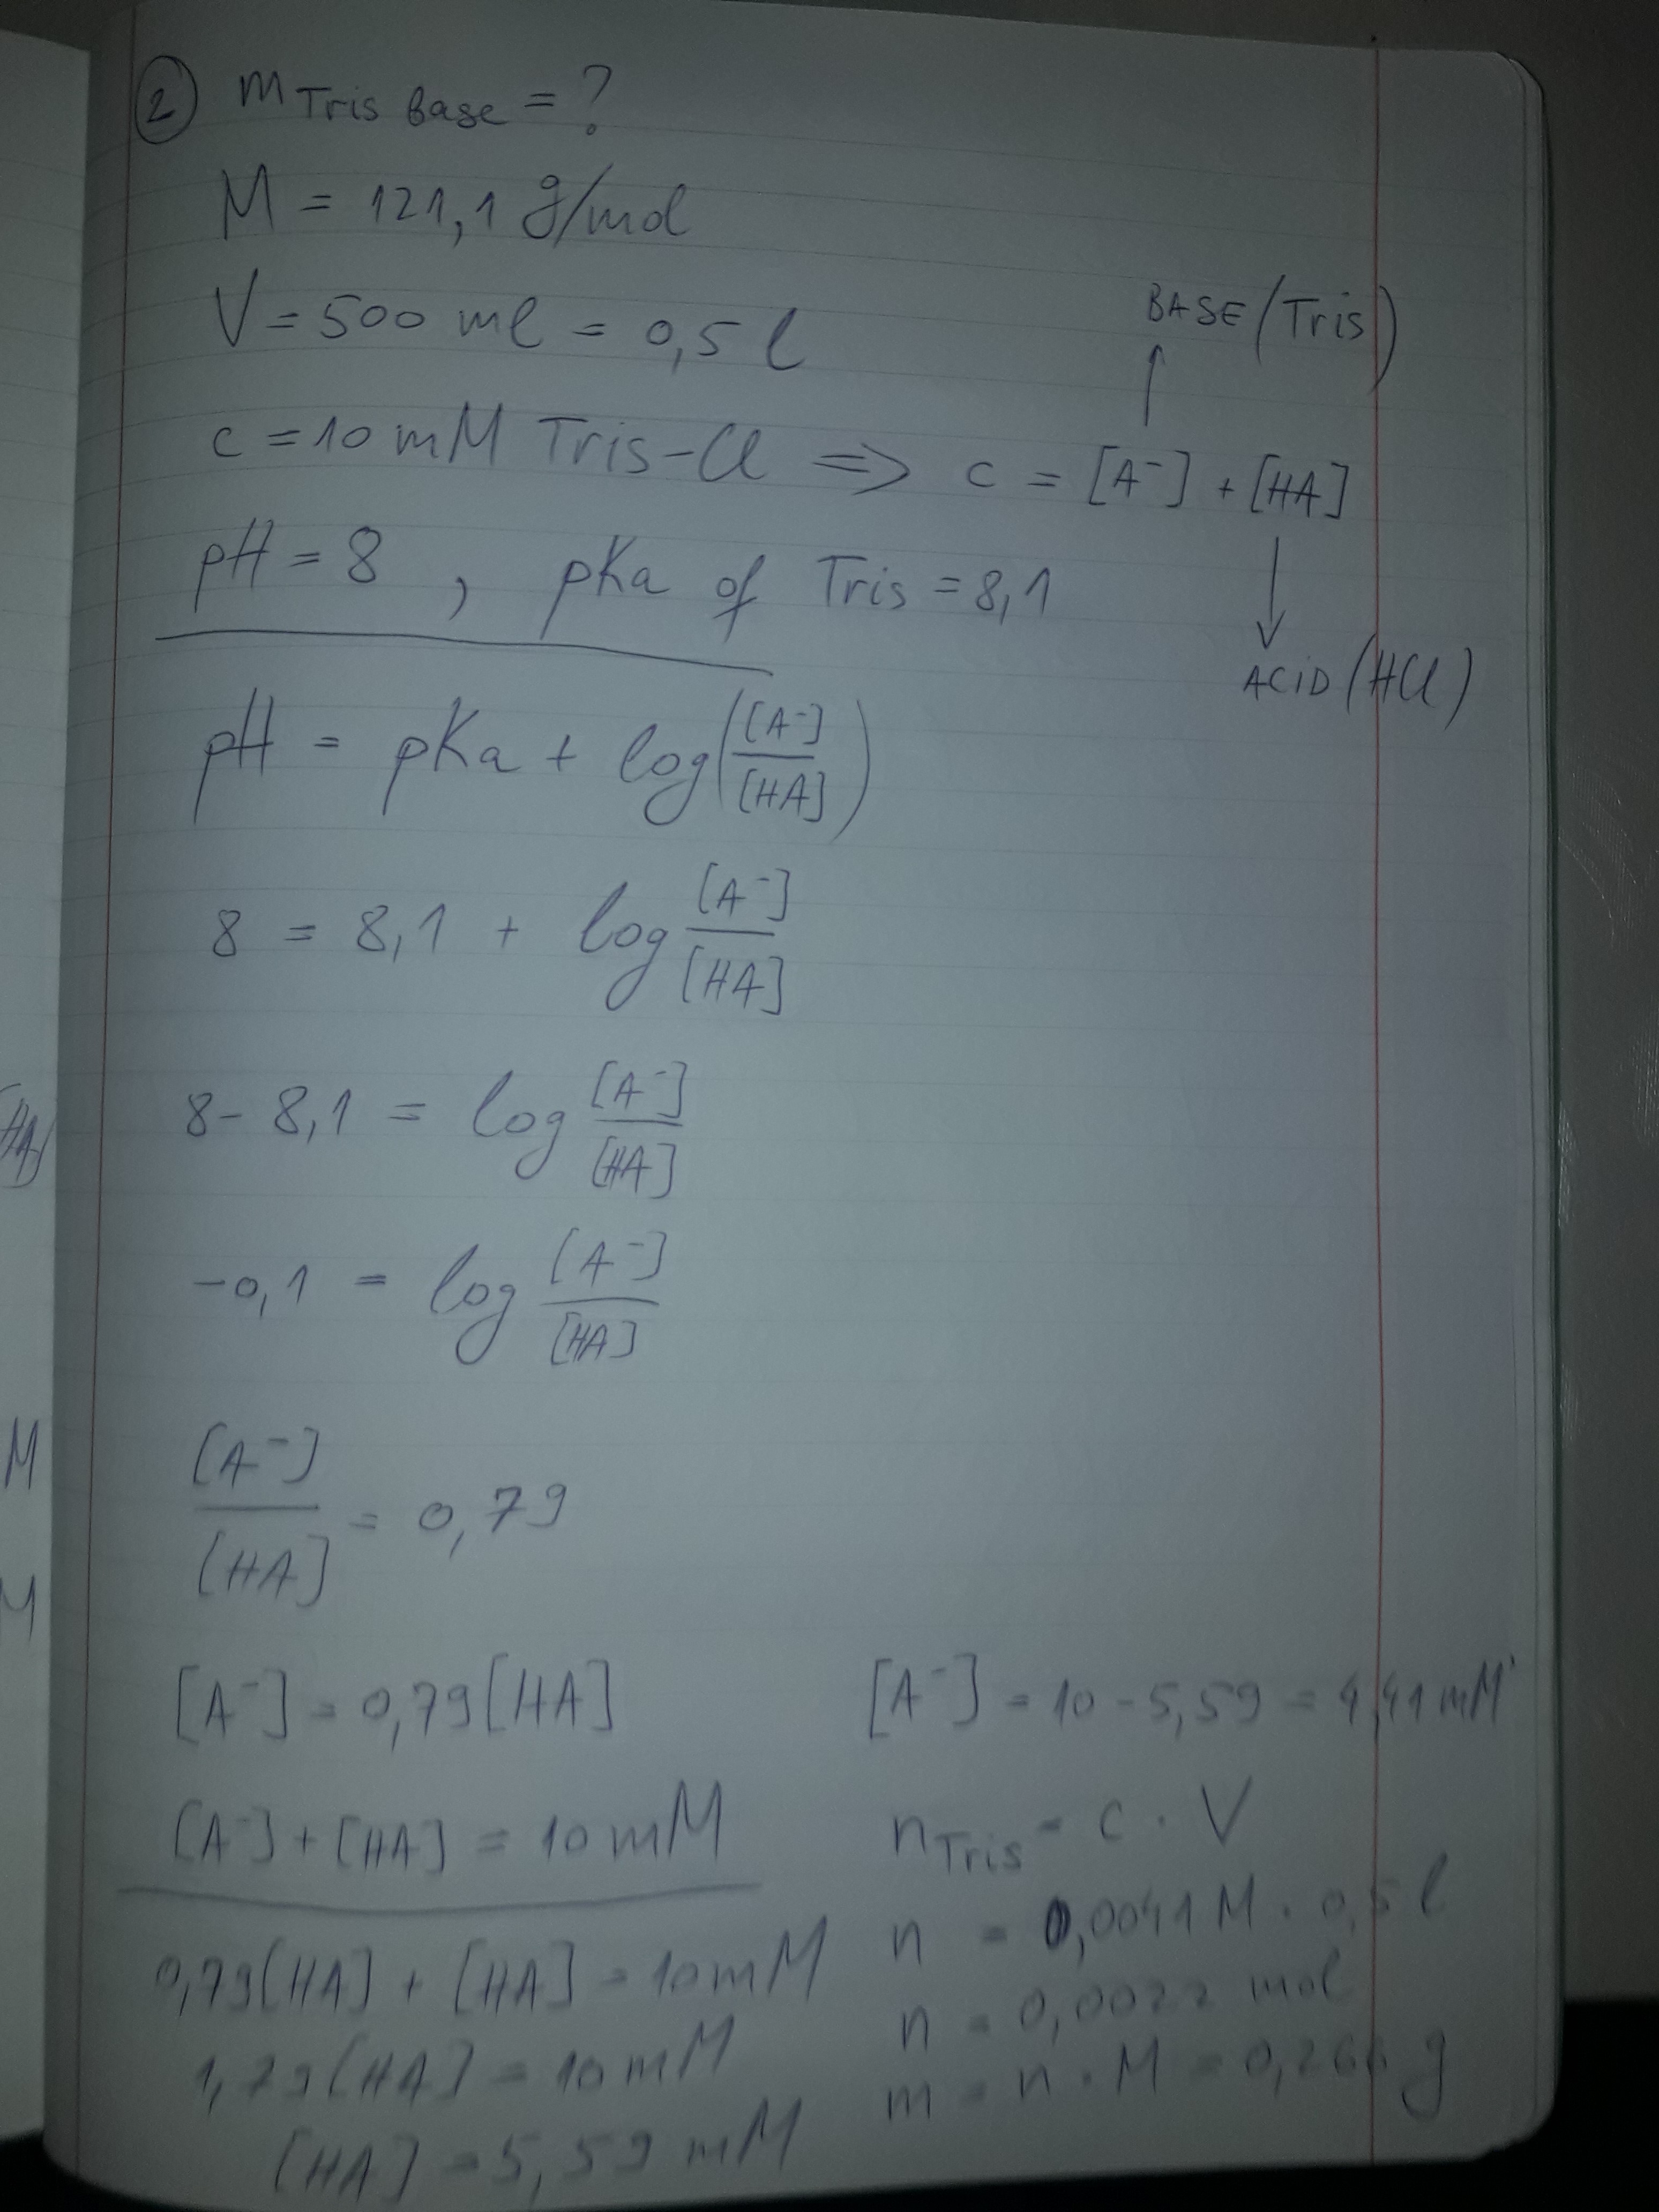 2 m Tris Base = ?
M = 121,1 g/mol
V = 500 ml = 0,5 l
BASE (Tris)
c = 10 mM Tris-Cl => c = [A-] + [HA]
pH = 8 , pKa of Tris = 8,1
ACID (HCl)
pH = pKa + log([A-]/[HA])
8 = 8,1 + log [A-]/[HA]
8 - 8,1 = log [A-]/[HA]
-0,1 = log [A-]/[HA]
[A-]/[HA] = 0,79
[A-] = 0,79[HA]
[A-] + [HA] = 10 mM
0,79[HA] + [HA] = 10 mM
1,79[HA] = 10 mM
[HA] = 5,59 mM
[A-] = 10 - 5,59 = 4,41 mM
n Tris = c . V
n = 0,0041 M . 0,5 l
n = 0,0022 mol
m = n . M = 0,266 g
[HA]
M
M